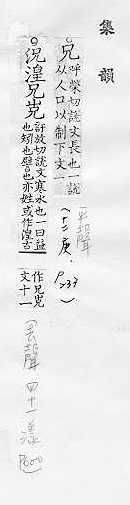 集韻
兄呼榮切說文長也一說
从人口以制下文一
(十二庚)
平聲
P.233
況湟兄㞷許放切說文寒水也一曰益
也矧也譬也亦姓或作湟古
作兄㞷
文十一
(去聲 四十一漾
P600)